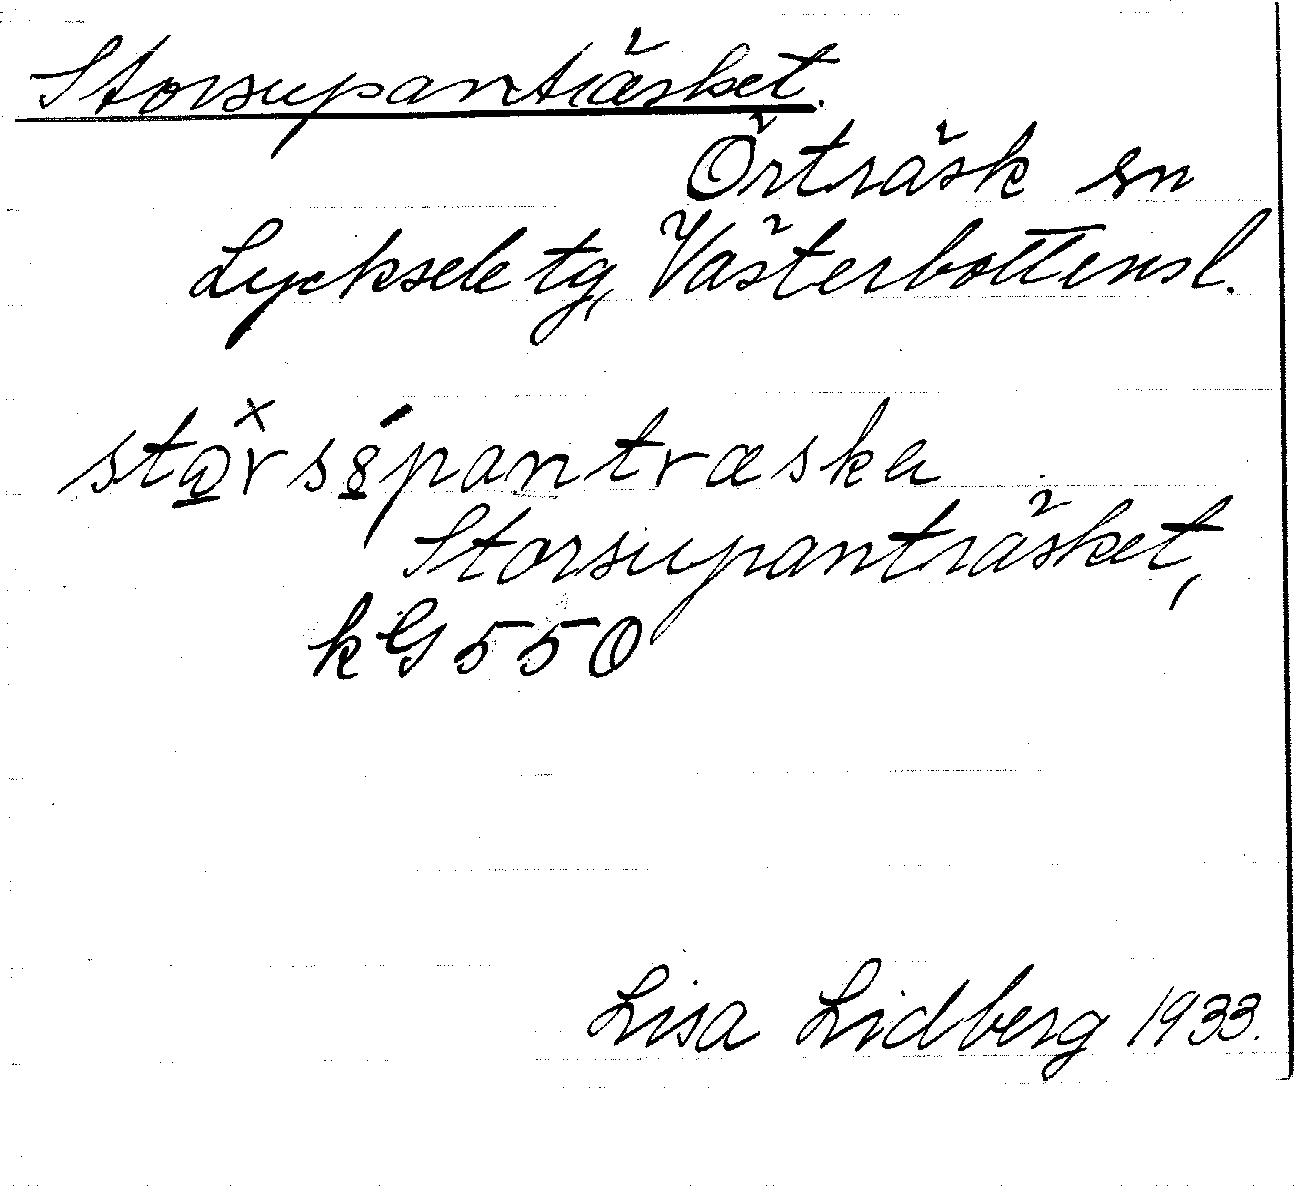 Storsupanträsket.
Örträsk sn
Lycksele tg, Västerbottensl.
Storsupanträsket,
kG550
Lisa Lidberg 1933.